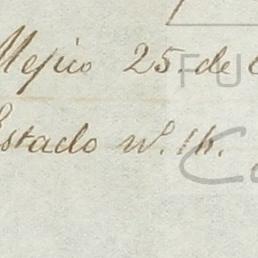 Mejico 25. de
Estado nº. 16.